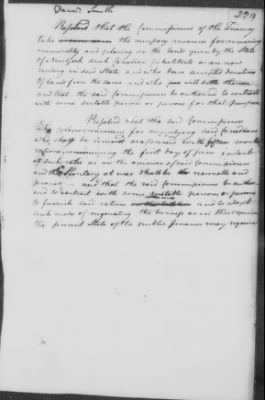 229
David Smith
Resolved that the Commissioners of the Treasury
take the necessary measures for removing
immediately and placing on the lands given by the State
of New York such Canadian as are now
residing in said State and who have accepted donations
of Land from the same and who will settle thereon
and that the said Commissioners be authorised to contract
with some suitable person or persons for that purpose
Resolved that the said Commissioners
for supplying said Canadians
who shall be removed as aforesaid with fifteen months
rations commencing the first day of June
at such rates as in the opinion of said Commissioners
and the Secretary at war shall be reasonable and
proper and that the said Commissioners be
to contract with some suitable person or persons
to furnish said rations and to adopt
such modes of negociating the business as in their opinion
the present State of the public finances may require